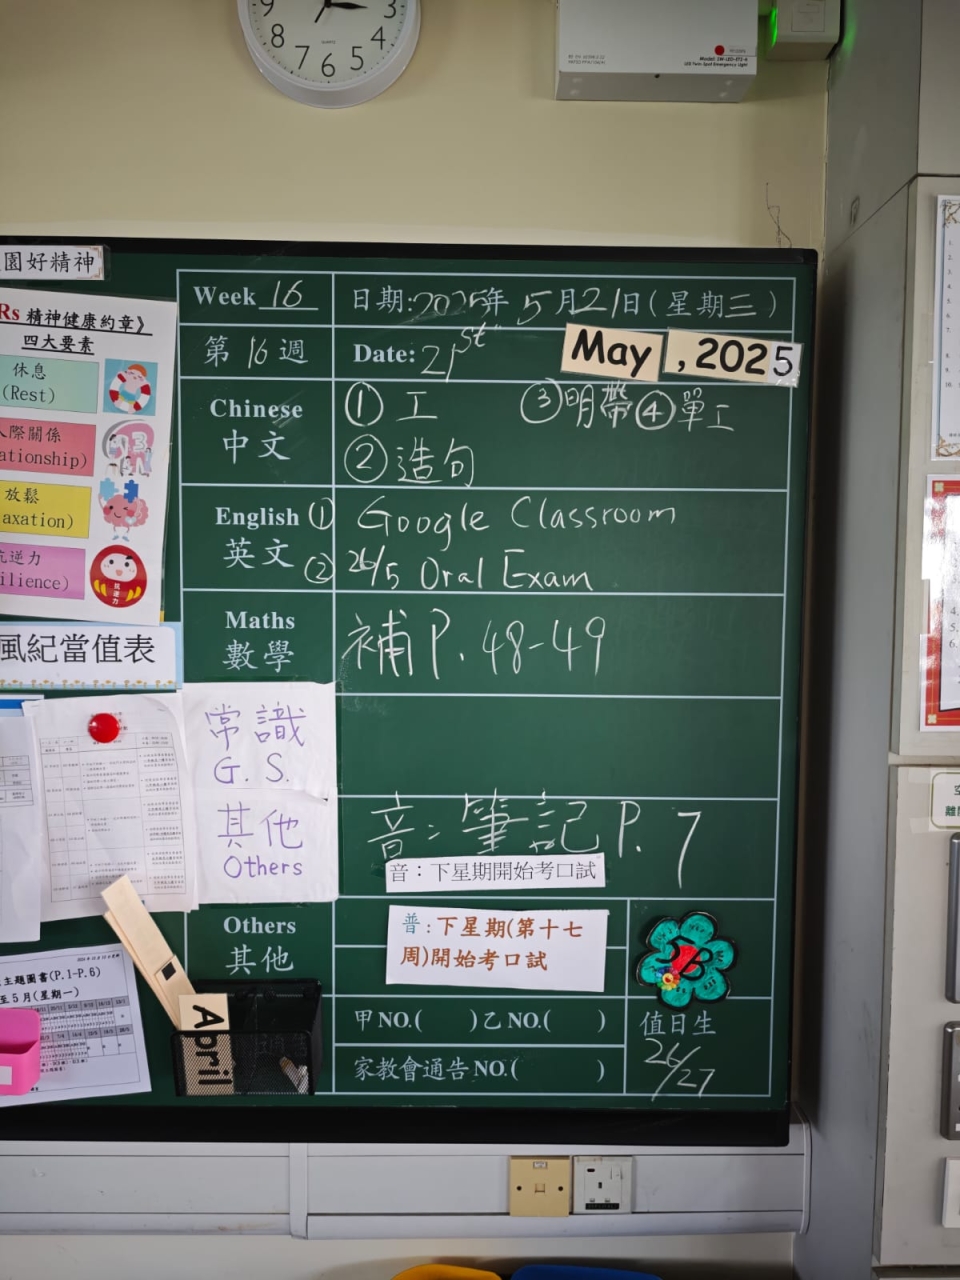 9
3
8
4
7
6
5
QUARTZ
Model: EM-LED-2T2-8
LED Twin Spot Emergency Light
園好精神
Rs 精神健康約章》
四大要素
休息
(Rest)
人際關係
ationship)
放鬆
axation)
抗逆力
ilience)
抗逆力
風紀當值表
Week 16
日期:2025年 5月21日(星期三)
第 16 週
Date: 21st
May , 2025
Chinese
中文
① 工
③明帶④單工
② 造句
English
英文
① Google Classroom
② 26/5 Oral Exam
Maths
數學
補 P. 48-49
常識
G. S.
其他
Others
音: 筆記 P. 7
音：下星期開始考口試
Others
其他
普：下星期(第十七
周)開始考口試
5B
甲 NO.( )乙 NO.( )
值日生
26/27
家教會通告 NO.( )
April
主題圖書(P.1-P.6)
至 5 月(星期一)